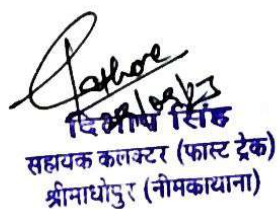 Rathore
सिंह
सहायक कलक्टर (फास्ट ट्रेक)
श्रीमाधोपुर (नीमकाथाना)